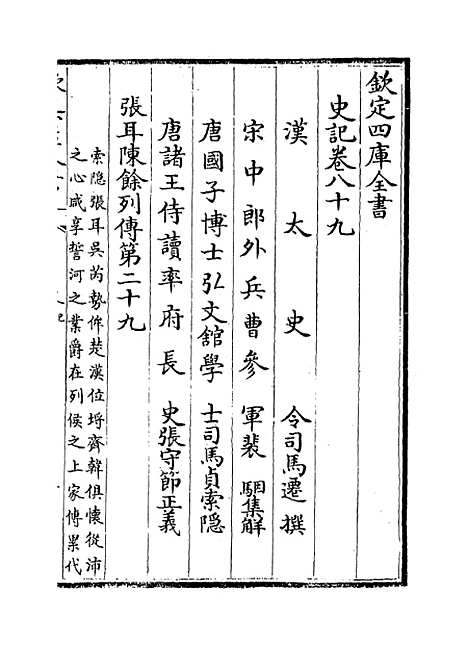 欽定四庫全書
史記卷八十九
漢太史令司馬遷撰
宋中郎外兵曹參軍裴駰集解
唐國子博士弘文館學士司馬貞索隱
唐諸王侍讀率府長史張守節正義
張耳陳餘列傳第二十九
索隱張耳吳芮勢侔楚漢位埒齊韓俱懷從沛
之心咸享誓河之業爵在列侯之上家傳累代